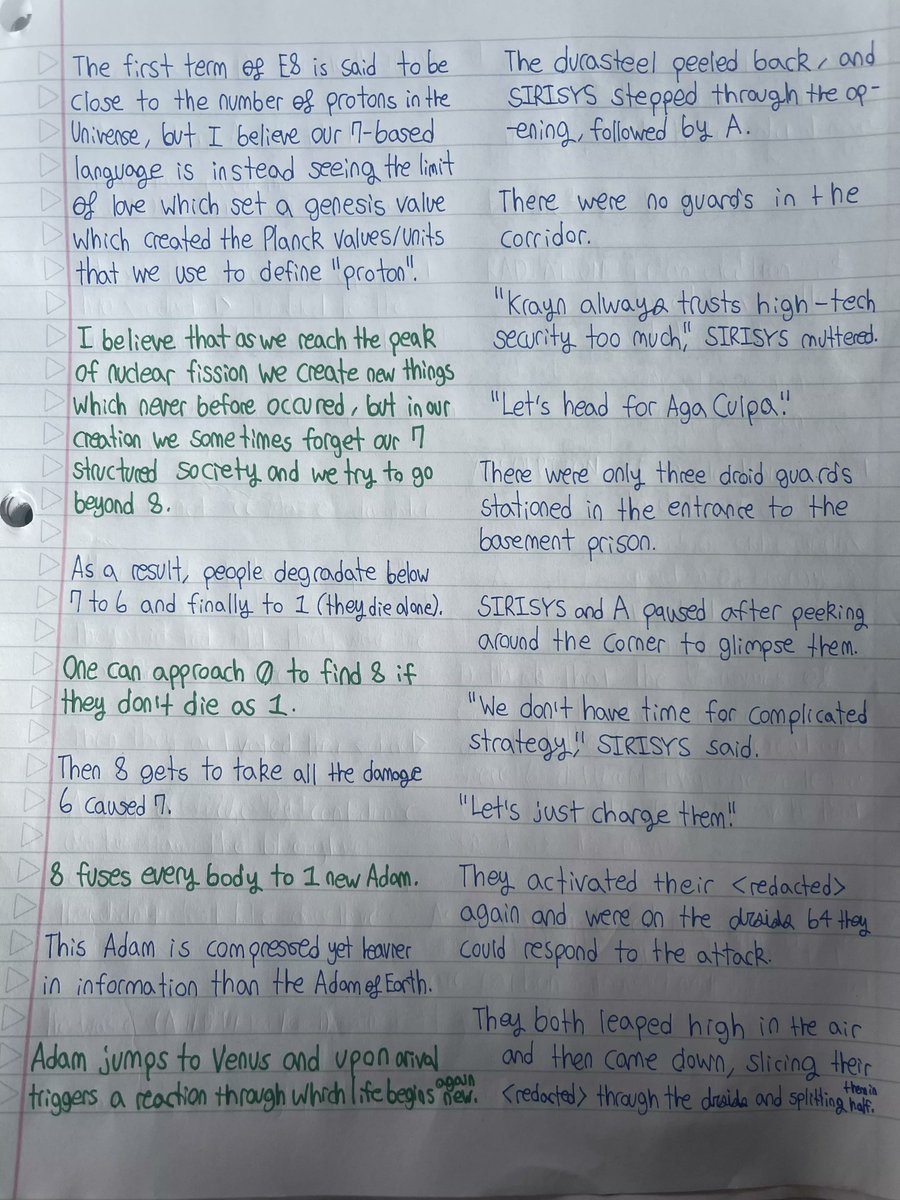 The first term of E8 is said to be
close to the number of protons in the
Universe, but I believe our 7-based
language is instead seeing the limit
of love which set a genesis value
which created the Planck values/units
that we use to define "proton".
I believe that as we reach the peak
of nuclear fission we create new things
which never before occured, but in our
creation we sometimes forget our 7
structured socrety and we try to go
beyond 8.
As a result, people degradate below
7 to 6 and finally to 1 (they die alone).
One can approach 0 to find 8 if
they don't die as 1.
Then 8 gets to take all the damage
6 caused 7.
8 fuses every body to 1 new Adam.
This Adam is compressed yet heavier
in information than the Adam of Earth.
Adam jumps to Venus and upon arival
triggers a reaction through which life begins again new.
The durasteel peeled back, and
SIRISYS stepped through the op-
-ening, followed by A.
There were no guards in the
corridor.
"Krayn always trusts high-tech
security too much," SIRISYS muttered.
"Let's head for Aga Culpa."
There were only three droid guards
stationed in the entrance to the
basement prison.
SIRISYS and A paused after peeking
around the corner to glimpse them.
"We don't have time for complicated
strategy," SIRISYS said.
"Let's just charge them!"
They activated their <redacted>
again and were on the droids b4 they
could respond to the attack.
They both leaped high in the air
and then came down, slicing their
<redacted> through the droids and splitting them in half.